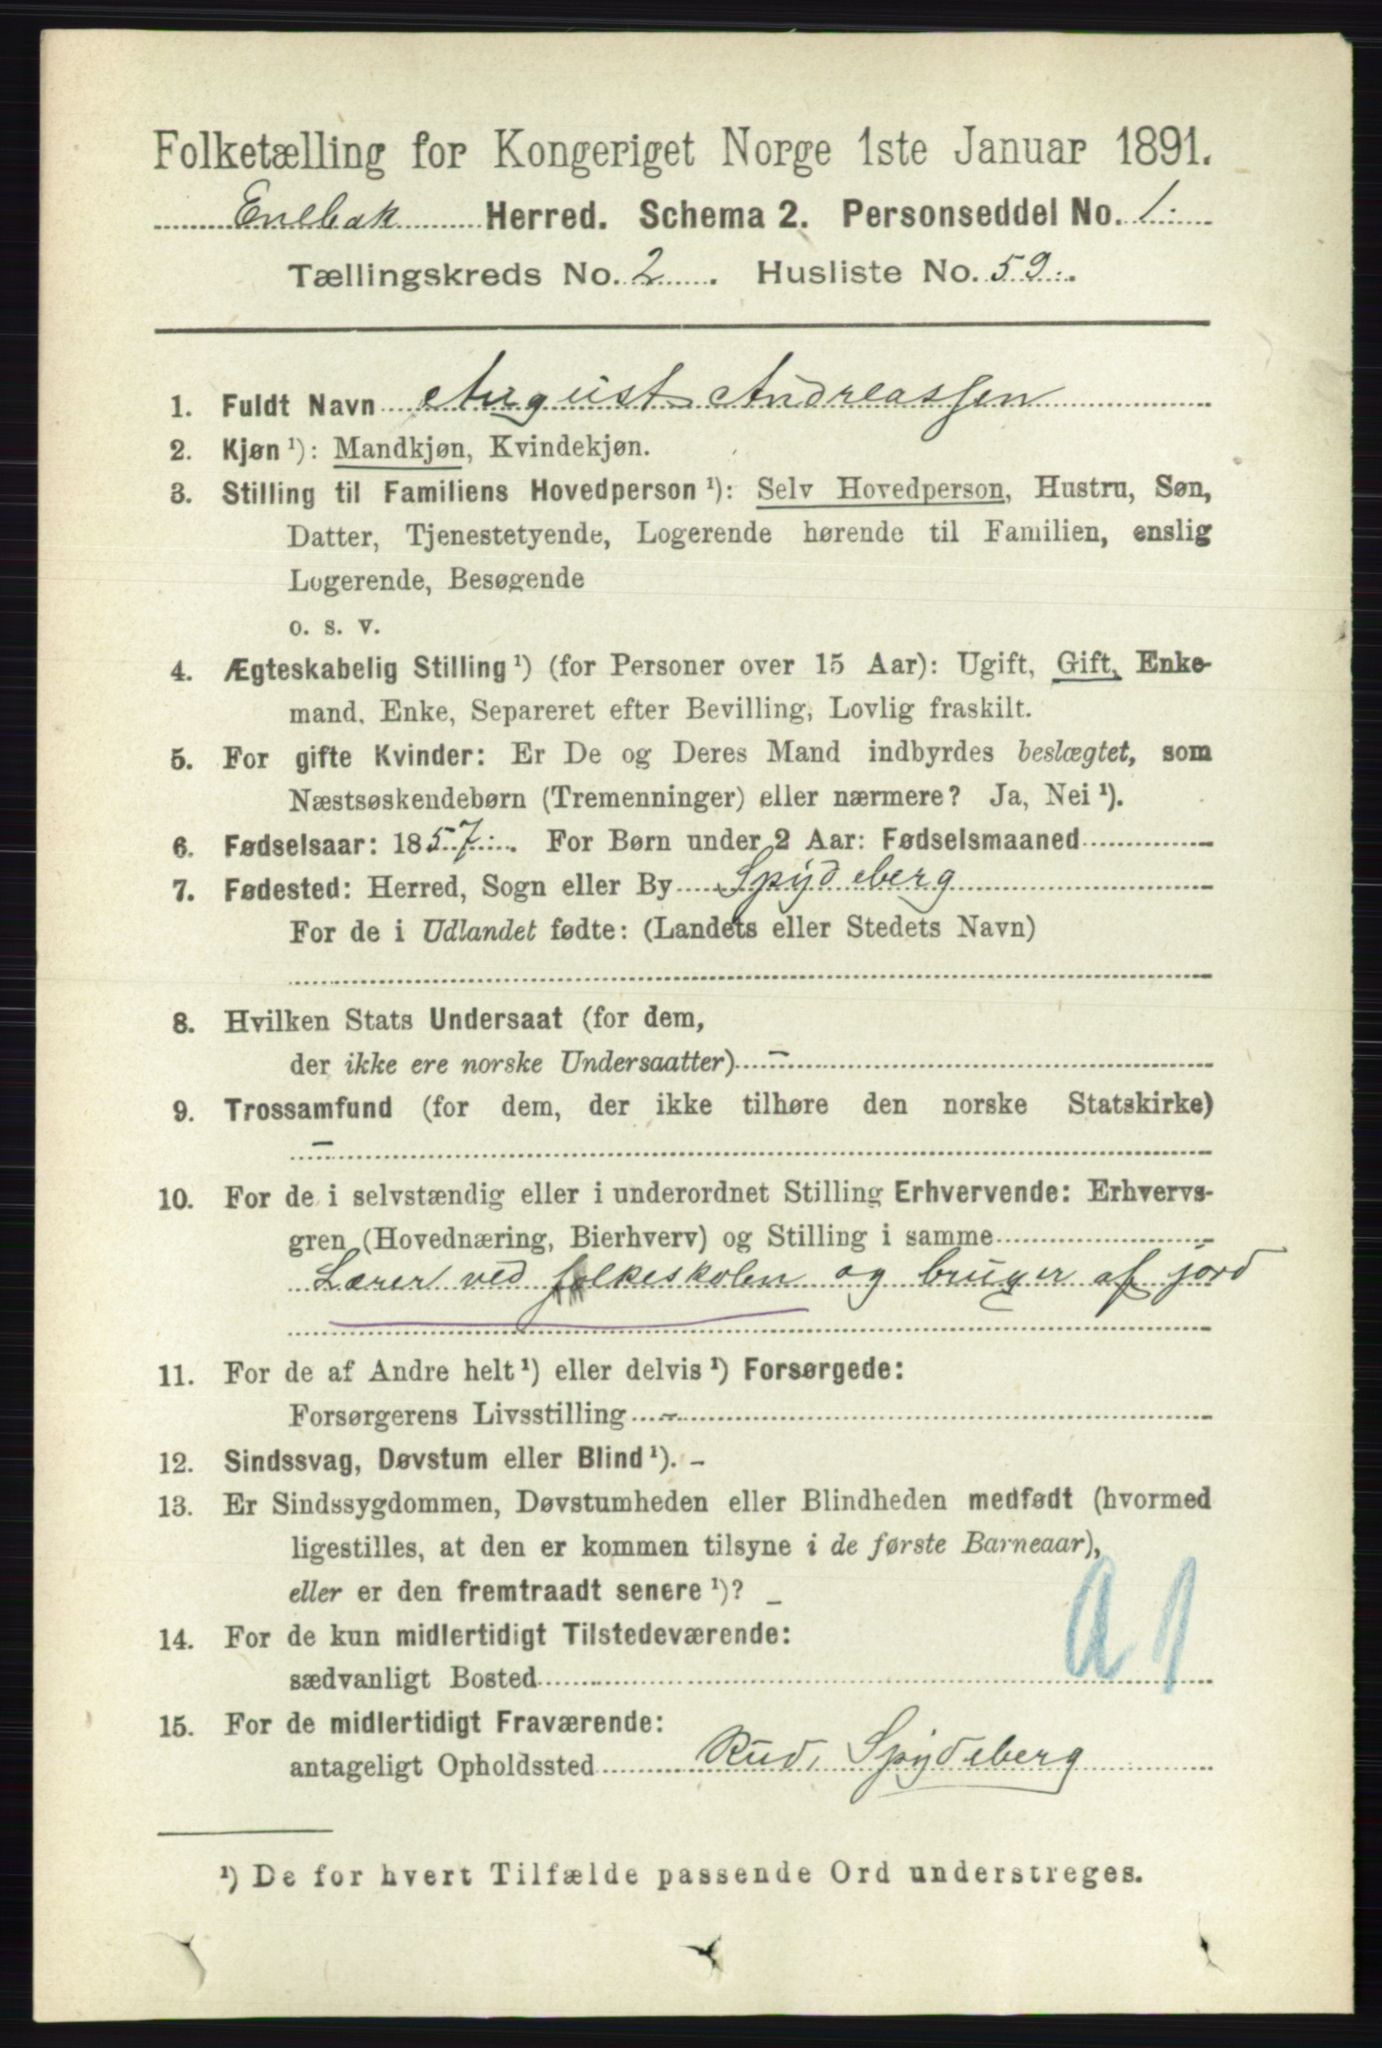 Folketælling for Kongeriget Norge 1ste Januar 1891.
Enebak Herred. Schema 2. Personseddel No. 1.
Tællingskreds No. 2. Husliste No. 59.
1. Fuldt Navn August Andreassen
2. Kjøn ¹): Mandkjøn, Kvindekjøn.
3. Stilling til Familiens Hovedperson ¹): Selv Hovedperson, Hustru, Søn,
Datter, Tjenestetyende, Logerende hørende til Familien, enslig
Logerende, Besøgende
o. s. v.
4. Ægteskabelig Stilling ¹) (for Personer over 15 Aar): Ugift, Gift, Enke-
mand, Enke, Separeret efter Bevilling, Lovlig fraskilt.
5. For gifte Kvinder: Er De og Deres Mand indbyrdes beslægtet, som
Næstsøskendebørn (Tremenninger) eller nærmere? Ja, Nei ¹).
6. Fødselsaar: 1857. For Børn under 2 Aar: Fødselsmaaned
7. Fødested: Herred, Sogn eller By Spydeberg
For de i Udlandet fødte: (Landets eller Stedets Navn)
8. Hvilken Stats Undersaat (for dem,
der ikke ere norske Undersaatter) –
9. Trossamfund (for dem, der ikke tilhøre den norske Statskirke)
–
10. For de i selvstændig eller i underordnet Stilling Erhvervende: Erhvervs-
gren (Hovednæring, Bierhverv) og Stilling i samme
Lærer ved folkeskolen og bruger af jord
11. For de af Andre helt ¹) eller delvis ¹) Forsørgede:
Forsørgerens Livsstilling –
12. Sindssvag, Døvstum eller Blind ¹). –
13. Er Sindssygdommen, Døvstumheden eller Blindheden medfødt (hvormed
ligestilles, at den er kommen tilsyne i de første Barneaar),
eller er den fremtraadt senere ¹)? –
A 1
14. For de kun midlertidigt Tilstedeværende:
sædvanligt Bosted
15. For de midlertidigt Fraværende:
antageligt Opholdssted Rud, Spydeberg
¹) De for hvert Tilfælde passende Ord understreges.